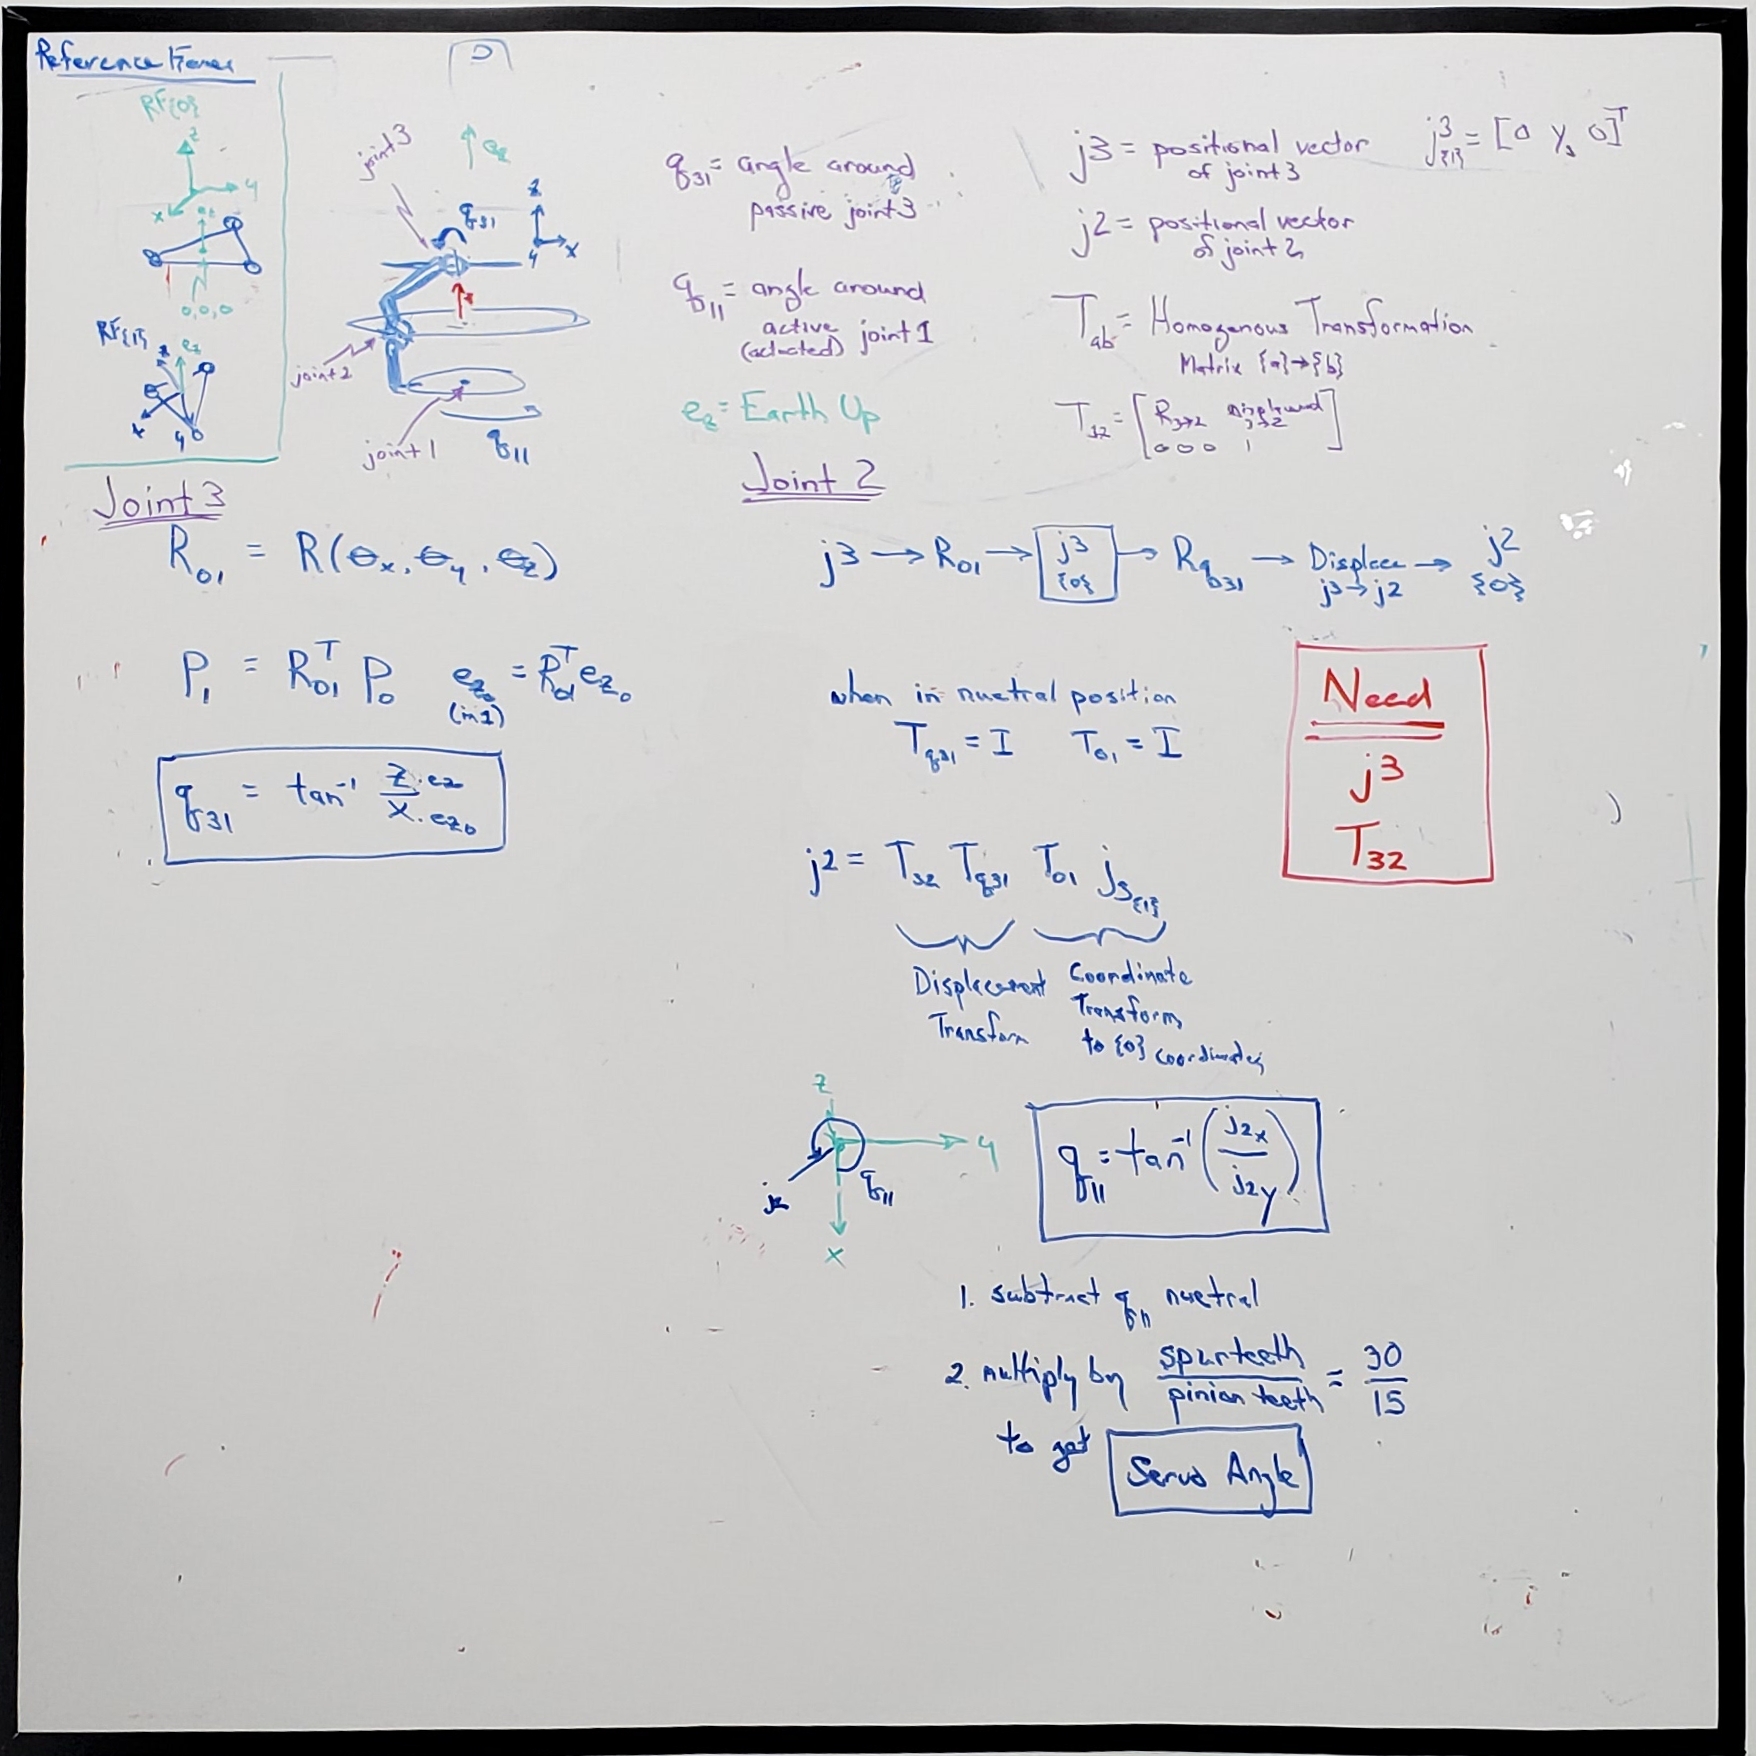 Reference Frames
RF{0}
z
y
x
0,0,0
RF{1}
ez
x
y
joint3
ez
q31
z
x
y
joint2
joint1
q11
q31 = angle around
passive joint3
q11 = angle around
active joint1
(actuated)
ez = Earth Up
j3 = positional vector
of joint3
j3{1} = [0 y3 0]^T
j2 = positional vector
of joint2
Tab = Homogenous Transformation
Matrix {a}→{b}
T32 = [R3→2
0 0 0 1]
Joint 3
R01 = R(θx, θy, θz)
P1 = R01^T P0 ez0 = R01^T ez0
(in1)
q31 = tan^-1 z·ez0 / x·ez0
Joint 2
j3 → R01 → j3 {0} → Rq31 → Displace j3→j2 → j2 {0}
when in nuetral position
Tq31 = I T01 = I
Need
j3
T32
j2 = T32 Tq31 T01 j3{1}
Displacement
Transform
Coordinate
Transform
to {0} coordinates
z
y
j2
q11
x
q11 = tan^-1 (j2x / j2y)
1. subtract q11 nuetral
2. multiply by spur teeth / pinion teeth = 30/15
to get Servo Angle